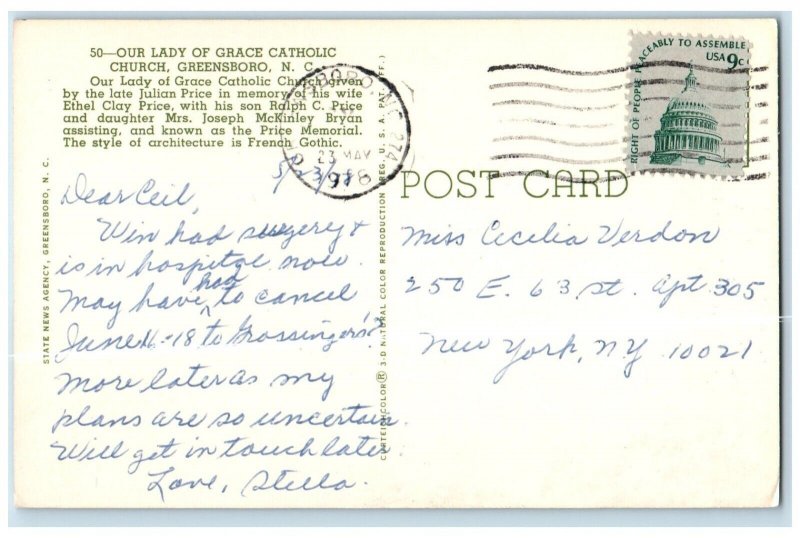 50—OUR LADY OF GRACE CATHOLIC
CHURCH, GREENSBORO, N. C.
Our Lady of Grace Catholic Church given
by the late Julian Price in memory of his wife
Ethel Clay Price, with his son Ralph C. Price
and daughter Mrs. Joseph McKinley Bryan
assisting, and known as the Price Memorial.
The style of architecture is French Gothic.
STATE NEWS AGENCY, GREENSBORO, N. C.
5/23/78
Dear Ceil,
Win had surgery &
is in hospital now.
May have had to cancel
June 16-18 to Grossingers!?
More later as my
plans are so uncertain.
Will get in touch later.
Love, Stella.
CURTEICHCOLOR® 3-D NATURAL COLOR REPRODUCTION (REG. U. S. A. PAT. OFF.)
GREENSBORO, N.C. 274
23 MAY
1978
RIGHT OF PEOPLE PEACEABLY TO ASSEMBLE
USA 9c
POST CARD
Miss Cecelia Verdon
250 E. 63 St. Apt 305
New York, NY 10021